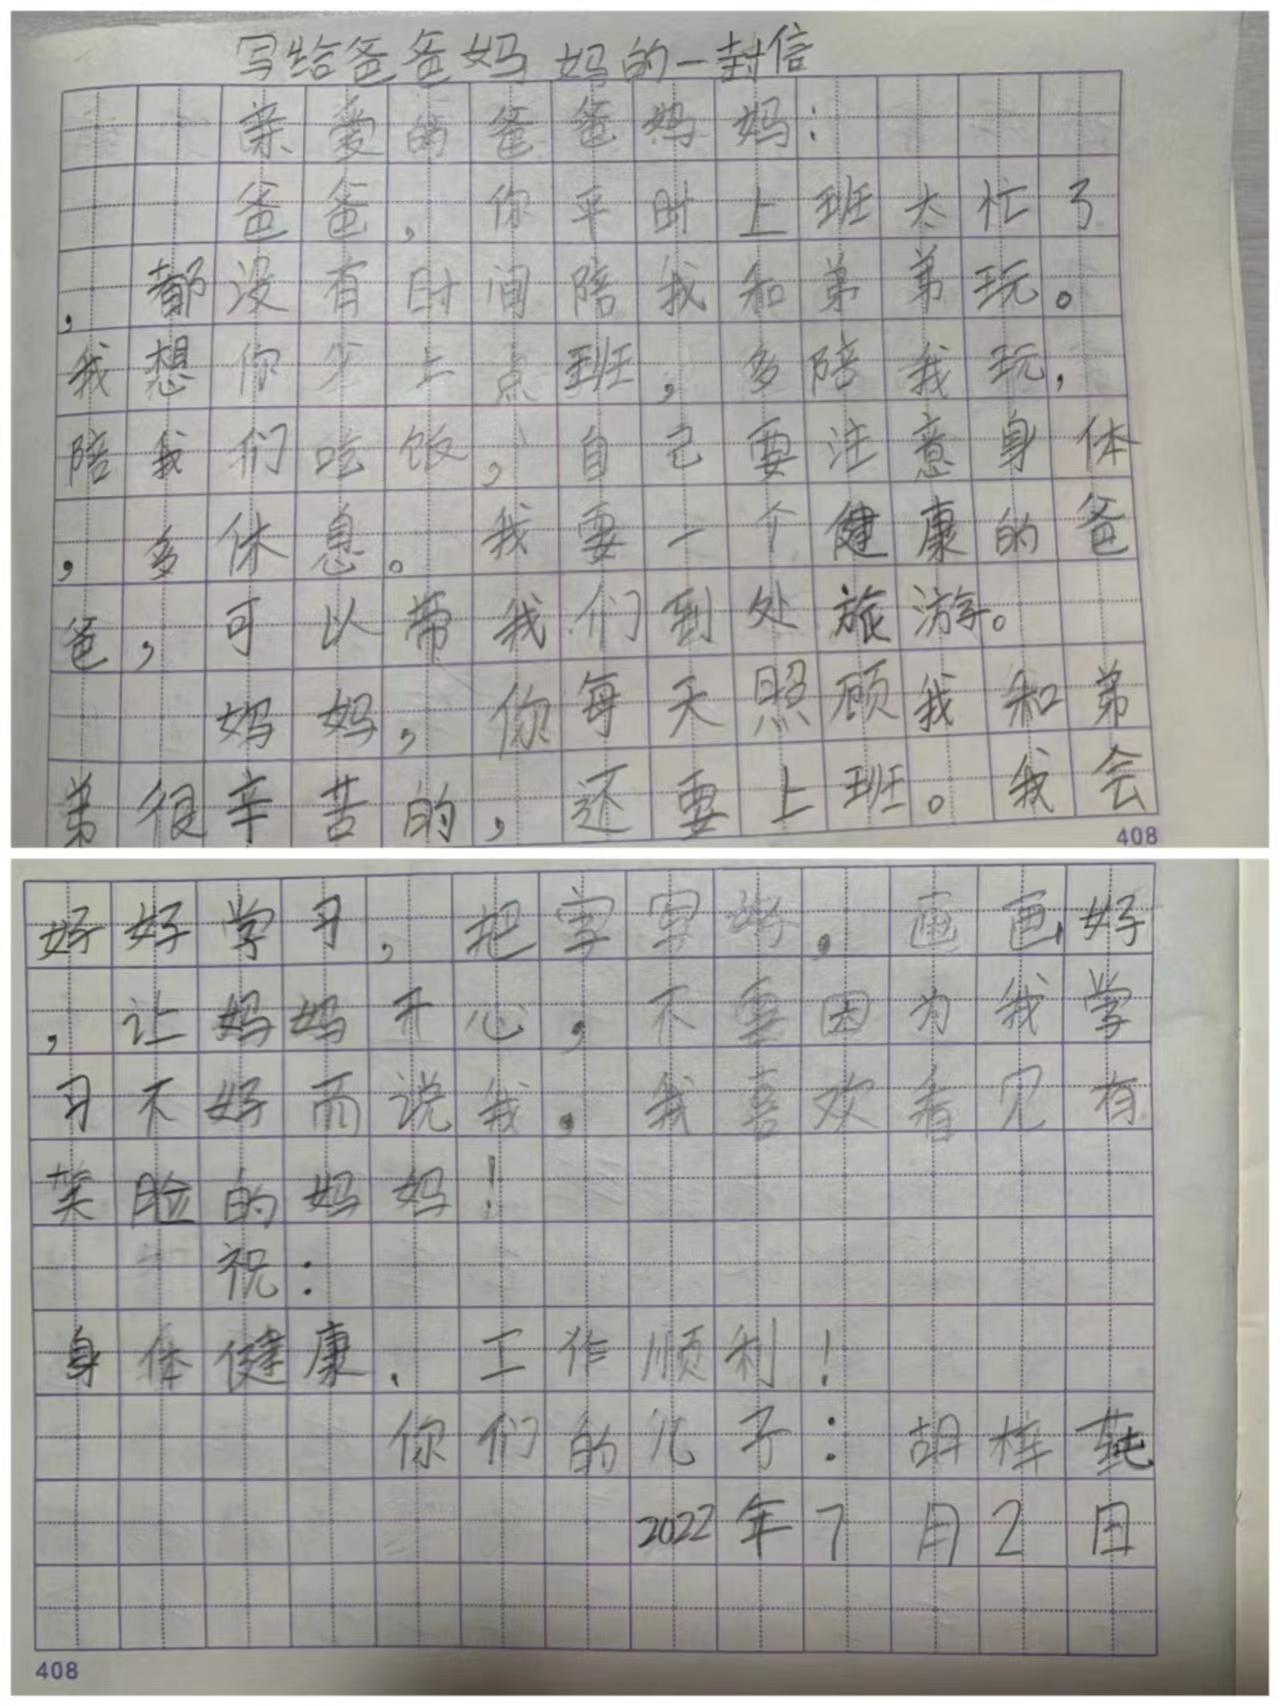 写给爸爸妈妈的一封信
亲爱的爸爸妈妈：
爸爸，你平时上班太忙了
，都没有时间陪我和弟弟玩。
我想你少上点班，多陪我玩，
陪我们吃饭，自己要注意身体
，多休息。我要一个健康的爸
爸，可以带我们到处旅游。
妈妈，你每天照顾我和弟
弟很辛苦的，还要上班。我会
408
好好学习，把字写好，画画好
，让妈妈开心，不要因为我学
习不好而说我。我喜欢看见有
笑脸的妈妈！
祝：
身体健康、工作顺利！
你们的儿子：胡梓
2022年7月2日
408